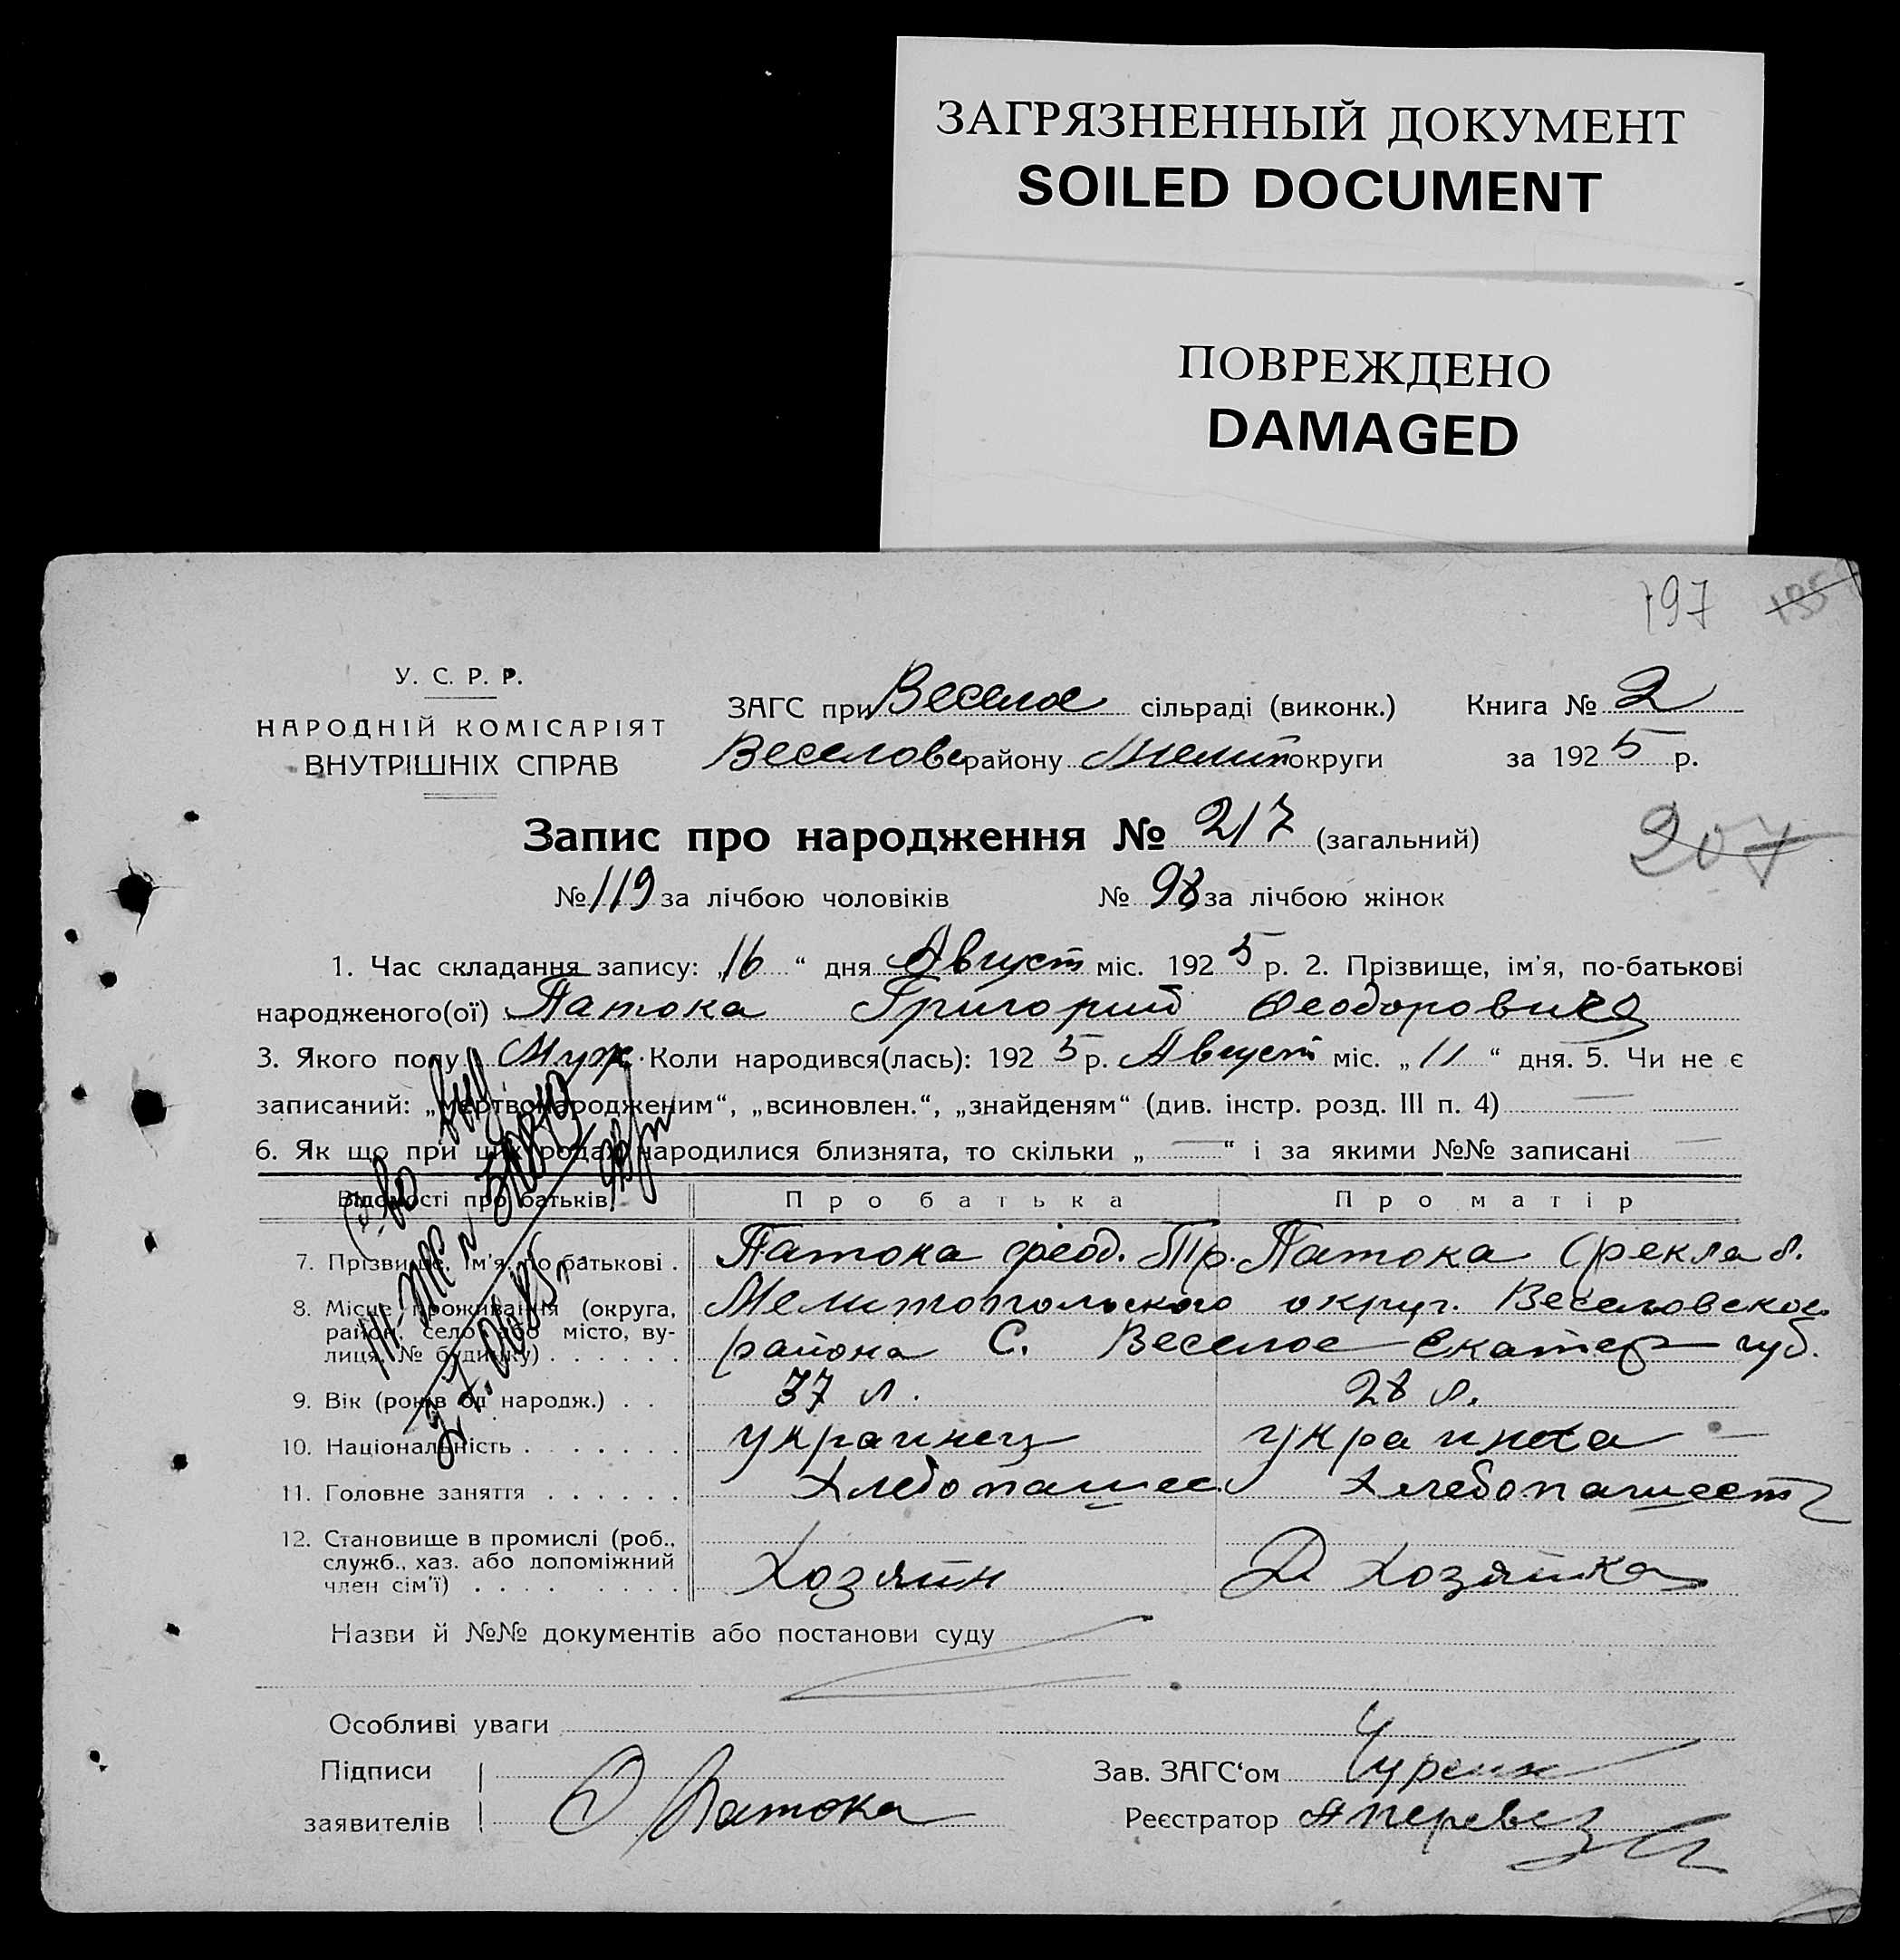 ЗАГРЯЗНЕННЫЙ ДОКУМЕНТ
SOILED DOCUMENT
ПОВРЕЖДЕНО
DAMAGED
197 195
У. С. Р. Р.
НАРОДНІЙ КОМІСАРІЯТ
ВНУТРІШНІХ СПРАВ
ЗАГС при Веселое сільраді (виконк.) Книга № 2
Веселовс району Мелит округи за 1925 р.
Запис про народження № 217 (загальний)
207
№ 119 за лічбою чоловіків № 98 за лічбою жінок
1. Час складання запису: „16“ дня Август міс. 1925 р. 2. Прізвище, ім'я, по-батькові
народженого(ої) Патока Григорий Феодорович
3. Якого полу Муж. Коли народився(лась): 1925 р. Август міс. „11“ дня. 5. Чи не є
записаний: „мертвонародженим“, „всиновлен.“, „знайденям“ (див. інстр. розд. III п. 4)
6. Як що при цих родах народилися близнята, то скільки „ “ і за якими №№ записані
Відомості про батьків Про батька Про матір
7. Прізвище, ім'я, по батькові . Патока Феод. Гр. Патока Фекла
8. Місце проживання (округа, Мелитопольского округ. Веселовского
район, село або місто, ву- района С. Веселое Екатер губ.
лиця, № будинку) . . . . . .
9. Вік (років од народж.) . . 37 л. 28 л.
10. Національність . . . . . . . украинец украинка
11. Головне заняття . . . . . . Хлебопашес Хлебопашест
12. Становище в промислі (роб.,
служб., хаз. або допоміжний Хозяин Д Хозяйка
член сім'ї) . . . . . . . .
Назви й №№ документів або постанови суду
Особливі уваги
Підписи Зав. ЗАГС'ом
заявителів Патока Реєстратор